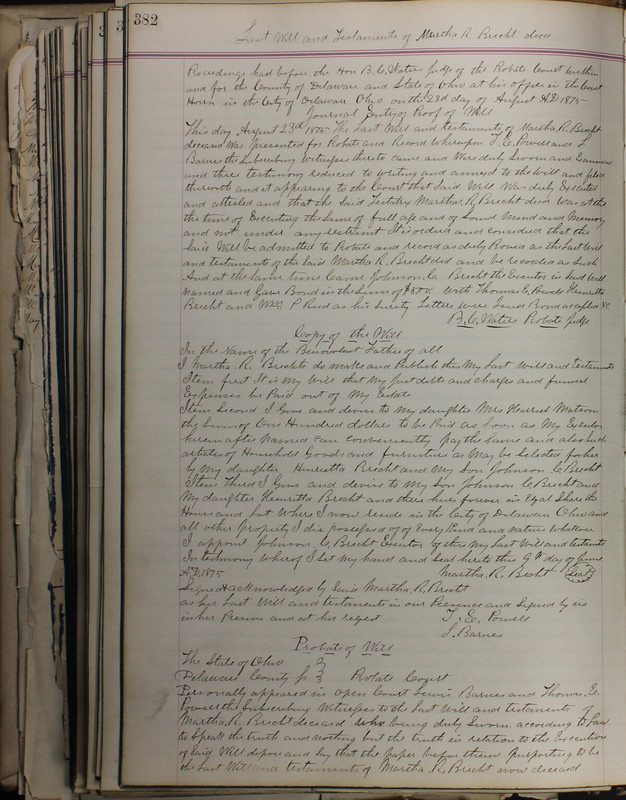 382
Last Will and Testaments of Martha R Brecht decd
Proceedings had before the Hon B. C. Waters Judge of the Probate Court within
and for the County of Delaware and State of Ohio at his office in the Court
House in the City of Delaware Ohio on the 23d day of August A.D. 1875
Journal Entry of Proof of Will
This day August 23rd 1875 The Last Will and testament of Martha. R. Brecht
deceased was presented for Probate and Record whereupon T. E. Powell and L
Barnes the Subscribing Witnesses thereto came and were duly Sworn and Examined
and there testimony reduced to writing and annexed to the Will and
therewith and it appearing to the Court that said Will was duly Executed
and attested and that the Said Martha. R. Brecht decd was at the
the time of Executing the Same of full age and of Sound Mind and Memory
and not under any restraint It is orderd and that the
Said Will be admitted to Probate and record as duly Proved as the Last Will
and testaments of the Said Martha R. Brecht decd and be recorded as Such
And at the Same time Came Johnson. C. Brecht the Executor in Said Will
named and Gave Bond in the Sum of With Thomas E. Powell Henrietta
Brecht and Wm P Reid as his Surity Letters were Issued
B. C. Waters Probate Judge
Copy of the Will
In the Name of the Benevolent Father of all
I Martha. R. Brecht do make and Publish this My Last Will and testaments
Item first It is My Will that My Just debts and charges and funeral
Expenses be Paid out of My Estate
Item Second I Give and devise to my daughter Mrs Harriet Matson
the Sum of One Hundred dollars to be Paid as Soon as My Executor
herein after named can conveniently pay the Same and also Such
articles of Household Goods and furniture as May be Selected for her
by My daughter Henrietta Brecht and My Son Johnson C. Brecht
Item Third I Give and devise to My Son Johnson C. Brecht and
My daughter Henrietta Brecht and there heirs forever in Equal Share the
House and Lot Where I now reside in the City of Delaware Ohio and
all other Property I die possessed of of Every Kind and nature Whatever
I appoint Johnson C. Brecht Executor of this My Last Will and testaments
In testimony Whereof I Set My hand and Seal hereto this 9th day of June
A.D. 1875 Martha. R. Brecht (Seal)
Signed & acknowledged by Said Martha. R. Brecht
as her Last Will and testaments in our Presence and Signed by us
in her Presence and at her request T. E. Powell
L. Barnes
Probate of Will
The State of Ohio
Delaware County ss Probate Court
Personally appeared in Open Court Lewis Barnes and Thomas. E.
Powell the Subscribing Witnesses to the Last Will and testaments of
Martha. R. Brecht deceased who being duly Sworn according to Law
to Speak the truth and nothing but the truth in relation to the Execution
of Said Will depose and Say that the paper before them Purporting to be
the Last Will and testaments of Martha. R. Brecht now deceased